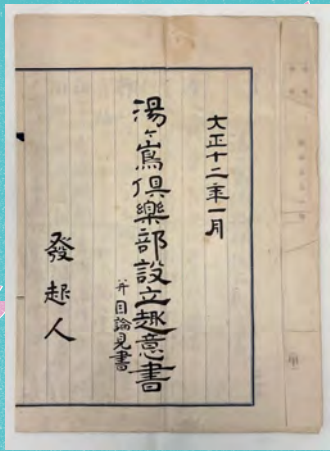 大正十二年一月
湯ヶ嶌倶樂部設立趣意書
并目論見書
發起人